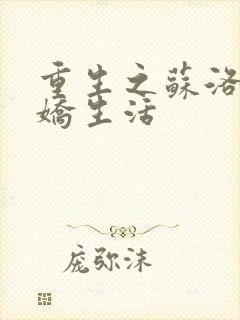 重生之蘇洛
嬌生活
庞弥沫